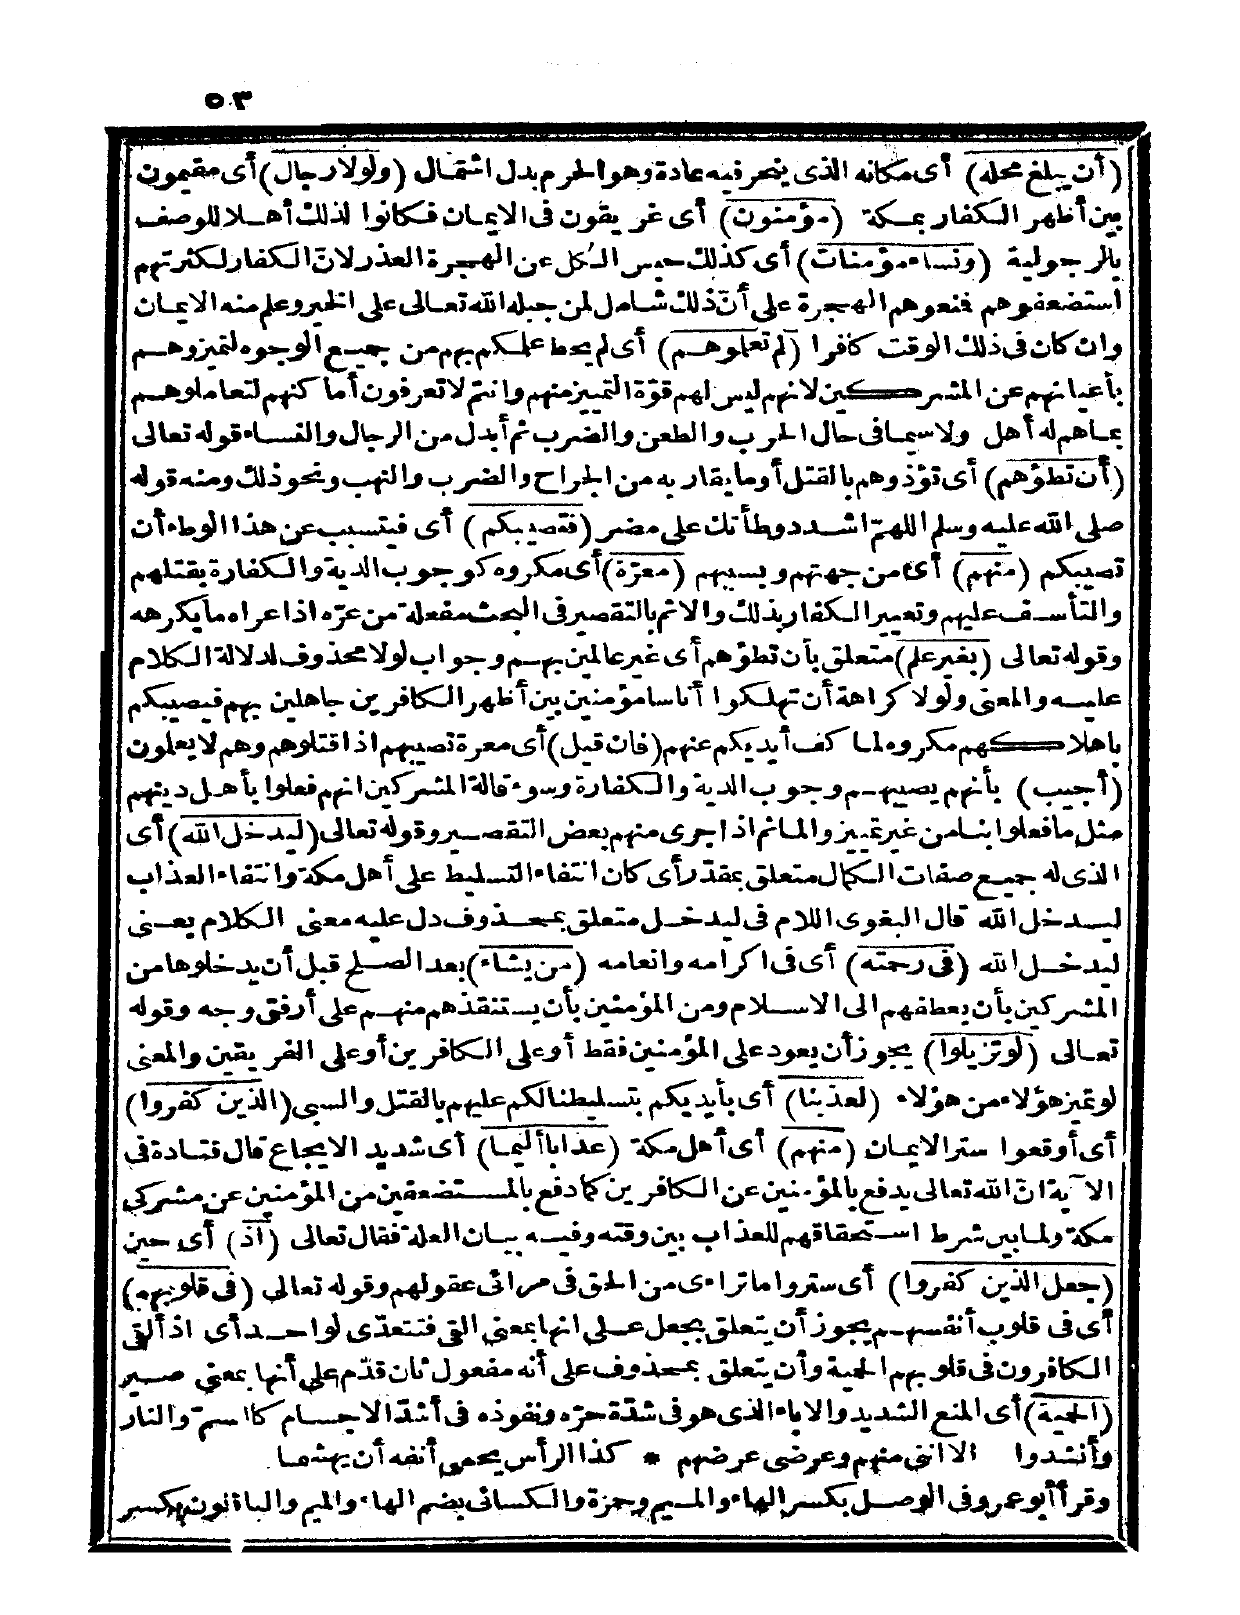 ٥٣
(أن يبلغ محله) أى مكانه الذى ينحر فيه عادة وهو الحرم بدل اشتمال (ولولا رجال) أى مقيمون
بين أظهر الكفار بمكة (مؤمنون) أى غر يقون فى الايمان فكانوا لذلك أهلا للوصف
بالرجولية (ونساء مؤمنات) أى كذلك حبس الكل عن الهجرة العذر لان الكفار لكثرتهم
استضعفوهم فمنعوهم الهجرة على أن ذلك شامل لمن جبله الله تعالى على الخير وعلم منه الايمان
وان كان فى ذلك الوقت كافرا (لم تعلموهم) أى لم يحط علمكم بهم من جميع الوجوه لتميزوهم
بأعيانهم عن المشركين لانهم ليس لهم قوّة التمييز منهم وانتم لا تعرفون أما كنهم لتعاملوهم
بماهم له أهل ولا سيما فى حال الحرب والطعن والضرب ثم أبدل من الرجال والنساء قوله تعالى
(أن تطؤهم) أى تؤذوهم بالقتل أو ما يقاربه من الجراح والضرب والنهب ونحو ذلك ومنه قوله
صلى الله عليه وسلم اللهمّ اشدد وطأتك على مضر (فتصيبكم) أى فيتسبب عن هذا الوطء أن
تصيبكم (منهم) أى من جهتهم وبسببهم (معرّة) أى مكروه كوجوب الدية والكفارة بقتلهم
والتأسف عليهم وتعيير الكفار بذلك والاثم بالتقصير فى البحث مفعلة من عرّه اذا عراه ما يكرهه
وقوله تعالى (بغير علم) متعلق بأن تطؤهم أى غير عالمين بهم وجواب لولا محذوف لدلالة الكلام
عليه والمعنى ولولا كراهة أن تهلكوا أناسا مؤمنين بين أظهر الكافرين جاهلين بهم فيصيبكم
باهلاكهم مكروه لما كف أيديكم عنهم (فان قيل) أى معرة تصيبهم اذا قتلوهم وهم لا يعلمون
(أجيب) بأنهم يصيبهم وجوب الدية والكفارة وسوء قالة المشركين انهم فعلوا بأهل دينهم
مثل ما فعلوا بنا من غير تمييز والمأثم اذا جرى منهم بعض التقصير وقوله تعالى (ليدخل الله) أى
الذى له جميع صفات الكمال متعلق بمقدّر أى كان انتفاء التسليط على أهل مكة وانتفاء العذاب
ليدخل الله قال البغوى اللام فى ليدخل متعلق بمحذوف دل عليه معنى الكلام يعنى
ليدخل الله (فى رحمته) أى فى اكرامه وانعامه (من يشاء) بعد الصلح قبل أن يدخلوها من
المشركين بأن يعطفهم الى الاسلام ومن المؤمنين بأن يستنقذهم منهم على أرفق وجه وقوله
تعالى (لوتزيلوا) يجوز أن يعود على المؤمنين فقط أو على الكافرين أو على الفريقين والمعنى
لو تميز هؤلاء من هؤلاء (لعذبنا) أى بأيديكم بتسليطنا لكم عليهم بالقتل والسبى (الذين كفروا)
أى أوقعوا ستر الايمان (منهم) أى أهل مكة (عذابا أليما) أى شديد الايجاع قال قتادة فى
الآية انّ الله تعالى يدفع بالمؤمنين عن الكافرين كما دفع بالمستضعفين من المؤمنين عن مشركى
مكة ولما بين شرط استحقاقهم للعذاب بين وقته وفيه بيان العلة فقال تعالى (اذ) أى حين
(جعل الذين كفروا) أى ستروا ما تراءى من الحق فى مرائى عقولهم وقوله تعالى (فى قلوبهم)
أى فى قلوب أنفسهم يجوز أن يتعلق بجعل على انها بمعنى القى فتتعدّى لواحد أى اذ ألقى
الكافرون فى قلوبهم الحمية وأن يتعلق بمحذوف على أنه مفعول ثان قدّم على أنها بمعنى صير
(الحمية) أى المنع الشديد والاباء الذى هو فى شدّة حرّه ونفوذه فى أشدّ الاجسام كالسمّ والنار
وأنشدوا الا اننى منهم وعرضى عرضهم * كذا الرأس يحمى أنفه أن يهشما
وقرأ أبو عمرو فى الوصل بكسر الهاء والميم وحمزة والكسائى بضم الهاء والميم والباقون بكسر